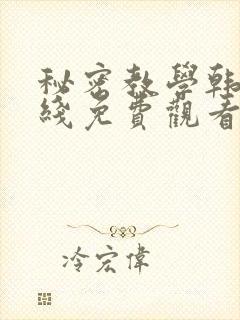 秘密教學韓
綫免費觀看
冷宏偉